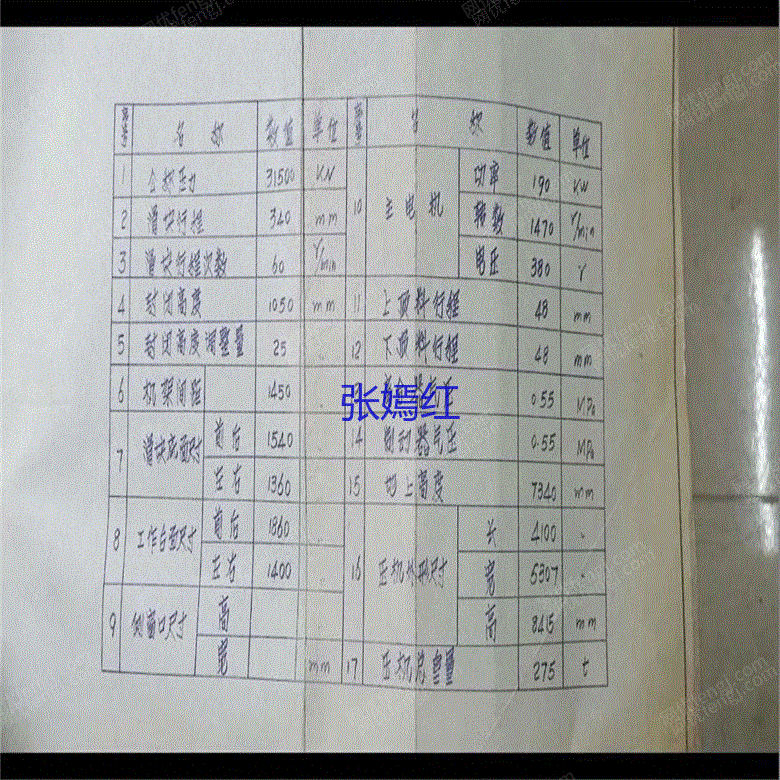 序号 名称 数值 单位 序号 名称 数值 单位
1 公称压力 31500 KN 10 主电机 功率 190 KW
2 滑块行程 340 mm 转数 1470 r/min
3 滑块行程次数 60 r/min 电压 380 V
4 封闭高度 1050 mm 11 上顶料行程 48 mm
5 封闭高度调整量 25 12 下顶料行程 48 mm
6 机架间距 1450 0.55 MPa
张嫣红
7 滑块底面尺寸 前后 1540 14 制动器气压 0.55 MPa
左右 1360 15 地上高度 7340 mm
8 工作台面尺寸 前后 1860 16 压机外形尺寸 长 4100
左右 1400 宽 5307
9 侧窗口尺寸 高 高 8415 mm
宽 mm 17 压机总重量 275 t